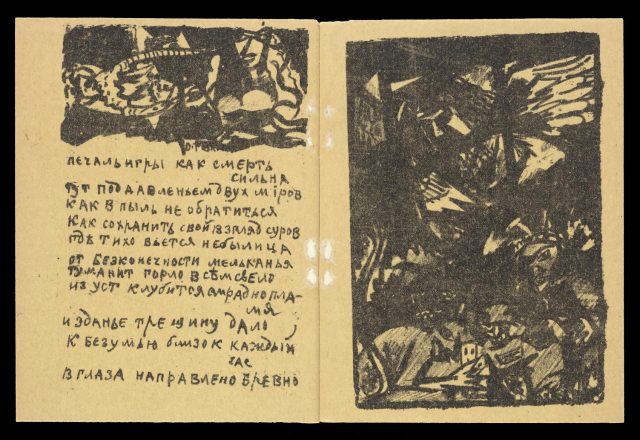 ПЕЧАЛЬ ИГРЫ КАК СМЕРТЬ
СИЛЬНА
ТУТ ПОД ДАВЛЕНЬЕМ ДВУХ МІРОВ
КАК В ПЫЛЬ НЕ ОБРАТИТЬСЯ
КАК СОХРАНИТЬ СВОЙ ВЗГЛЯД СУРОВ
ГДѢ ТИХО ВЬЕТСЯ НЕБЫЛИЦА
ОТ БЕЗКОНЕЧНОСТИ МЕЛЬКАНЬЯ
ТУМАНИТ ГОРЛО ВСѢМ СВЕЛО
ИЗ УСТ КЛУБИТСЯ СМРАДНО ПЛА-
МЯ
И ЗДАНЬЕ ТРЕЩИНУ ДАЛО
К БЕЗУМЬЮ БЛИЗОК КАЖДЫЙ
ЧАС
В ГЛАЗА НАПРАВЛЕНО БРЕВНО